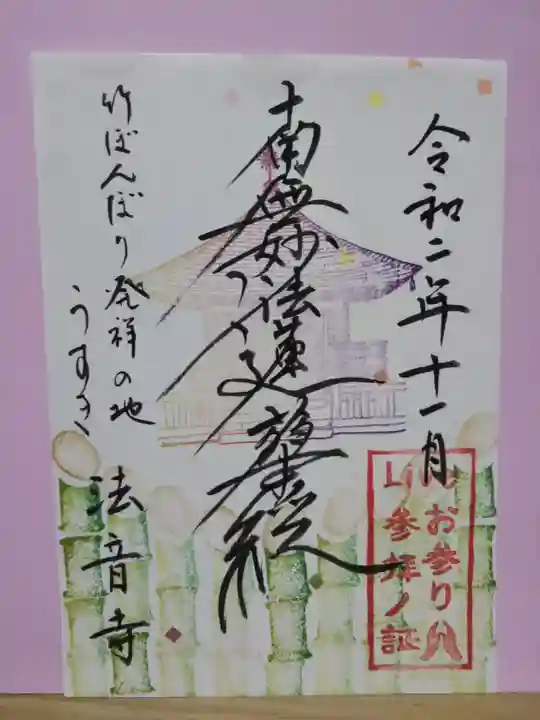 令和二年十一月
お参り
山参拝ノ証
南無妙法蓮華経
竹ぼんぼり発祥の地
うすき
法音寺